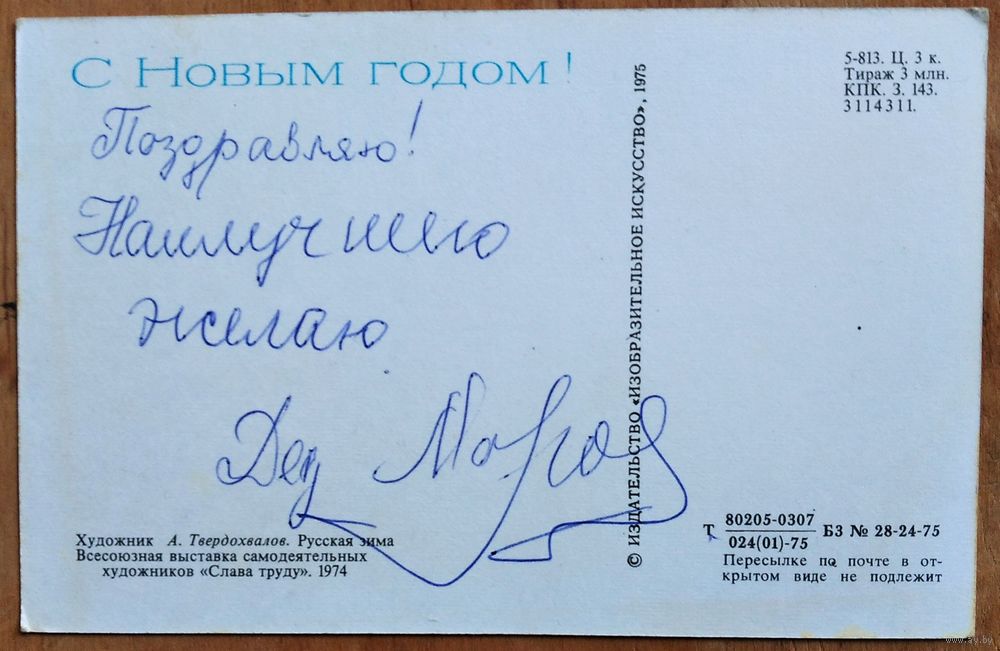 С Новым годом!
Поздравляю!
Наилучшего
желаю
Дед Мороз
Художник А. Твердохвалов. Русская зима
Всесоюзная выставка самодеятельных
художников «Слава труду». 1974
© ИЗДАТЕЛЬСТВО «ИЗОБРАЗИТЕЛЬНОЕ ИСКУССТВО», 1975
5-813. Ц. 3 к.
Тираж 3 млн.
КПК. З. 143.
3114311.
Т 80205-0307
024(01)-75 БЗ № 28-24-75
Пересылке по почте в от-
крытом виде не подлежит
www.ay.by